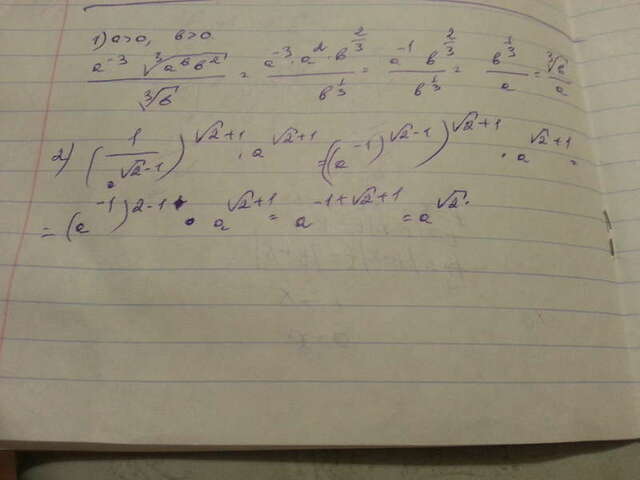 1) a>0, b>0
(a⁻³ ∛(a⁶b²))/∛b = (a⁻³ · a² · b^(2/3))/b^(1/3) = (a⁻¹ b^(2/3))/b^(1/3) = b^(1/3)/a = ∛b/a
2) (1/a^(√2-1))^(√2+1) · a^(√2+1) = (a⁻¹)^(√2-1))^(√2+1) · a^(√2+1) =
= (a⁻¹)^(2-1) · a^(√2+1) = a^(-1+√2+1) = a^(√2).